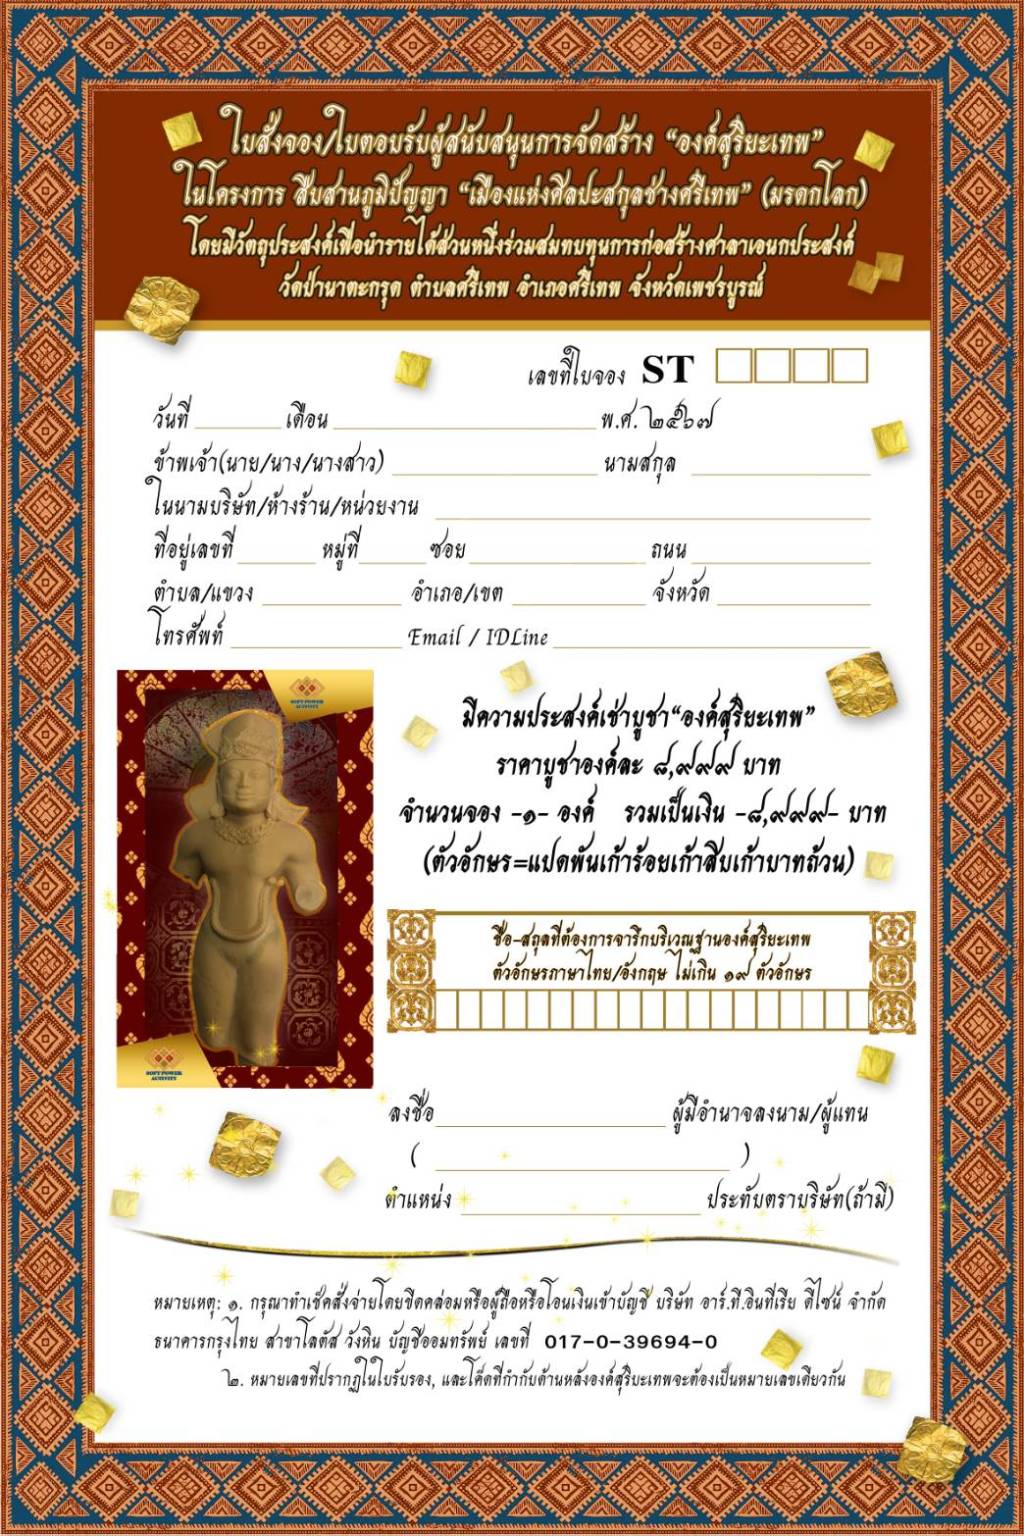 ใบสั่งจอง/ใบตอบรับผู้สนับสนุนการจัดสร้าง “องค์สุริยะเทพ”
ในโครงการ สืบสานภูมิปัญญา “เมืองแห่งศิลปะสกุลช่างศรีเทพ” (มรดกโลก)
โดยมีวัตถุประสงค์เพื่อนำรายได้ส่วนหนึ่งร่วมสมทบทุนการก่อสร้างศาลาเอนกประสงค์
วัดป่านาตะกรุด ตำบลศรีเทพ อำเภอศรีเทพ จังหวัดเพชรบูรณ์
เลขที่ใบจอง ST
วันที่ เดือน พ.ศ. ๒๕๖๗
ข้าพเจ้า(นาย/นาง/นางสาว) นามสกุล
ในนามบริษัท/ห้างร้าน/หน่วยงาน
ที่อยู่เลขที่ หมู่ที่ ซอย ถนน
ตำบล/แขวง อำเภอ/เขต จังหวัด
โทรศัพท์ Email / IDLine
SOFT POWER
ACTIVITY
มีความประสงค์เช่าบูชา“องค์สุริยะเทพ”
ราคาบูชาองค์ละ ๘,๙๙๙ บาท
จำนวนจอง -๑- องค์ รวมเป็นเงิน -๘,๙๙๙- บาท
(ตัวอักษร=แปดพันเก้าร้อยเก้าสิบเก้าบาทถ้วน)
ชื่อ-สกุลที่ต้องการจารึกบริเวณฐานองค์สุริยะเทพ
ตัวอักษรภาษาไทย/อังกฤษ ไม่เกิน ๑๙ ตัวอักษร
SOFT POWER
ACTIVITY
ลงชื่อ ผู้มีอำนาจลงนาม/ผู้แทน
( )
ตำแหน่ง ประทับตราบริษัท(ถ้ามี)
หมายเหตุ: ๑. กรุณาทำเช็คสั่งจ่ายโดยขีดคล่อมหรือผู้ถือหรือโอนเงินเข้าบัญชี บริษัท อาร์.ที.อินทีเรีย ดีไซน์ จำกัด
ธนาคารกรุงไทย สาขาโลตัส วังหิน บัญชีออมทรัพย์ เลขที่ 017-0-39694-0
๒. หมายเลขที่ปรากฏในใบรับรอง, และโค๊ดที่กำกับด้านหลังองค์สุริยะเทพจะต้องเป็นหมายเลขเดียวกัน